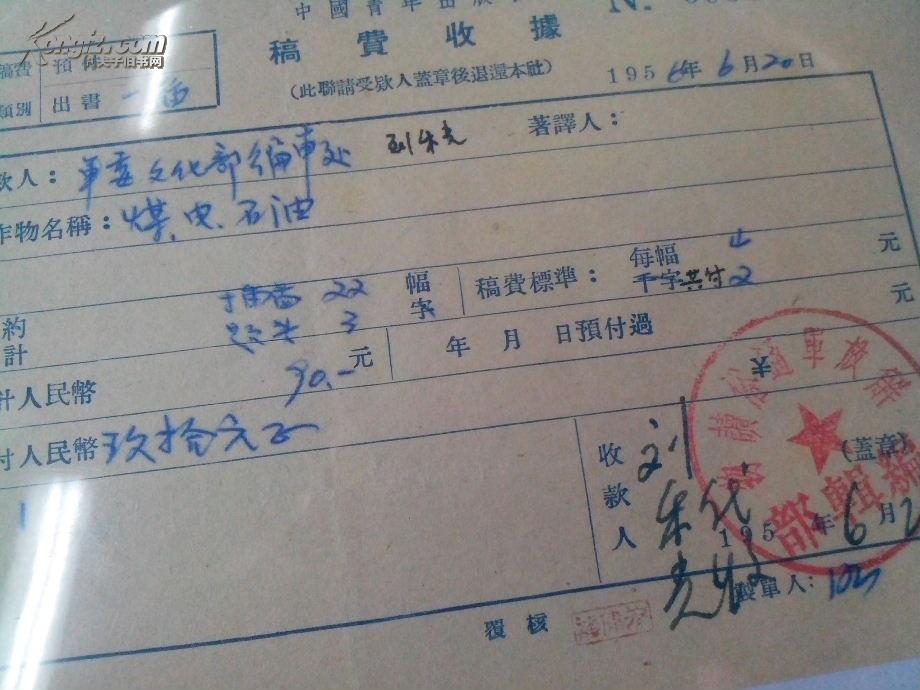 中國青年出版
稿費收據
(此聯請受欵人蓋章後退還本社)
1956年6月20日
Kongfz.com
孔夫子旧书网
稿費 預付
類別 出書 一播
欵人：軍委文化部編審处 刘朱光 著譯人：
作物名稱：煤、电、石油
約計 插畵 22 幅
3 字
稿費標準：每幅 4 元
千字共付 2 元
計人民幣 90.- 元 年 月 日預付過
付人民幣 玖拾元正
¥
收款人 刘朱光 代
(蓋章)
195 年6月2
解放軍
編輯部
覆核
製單人：